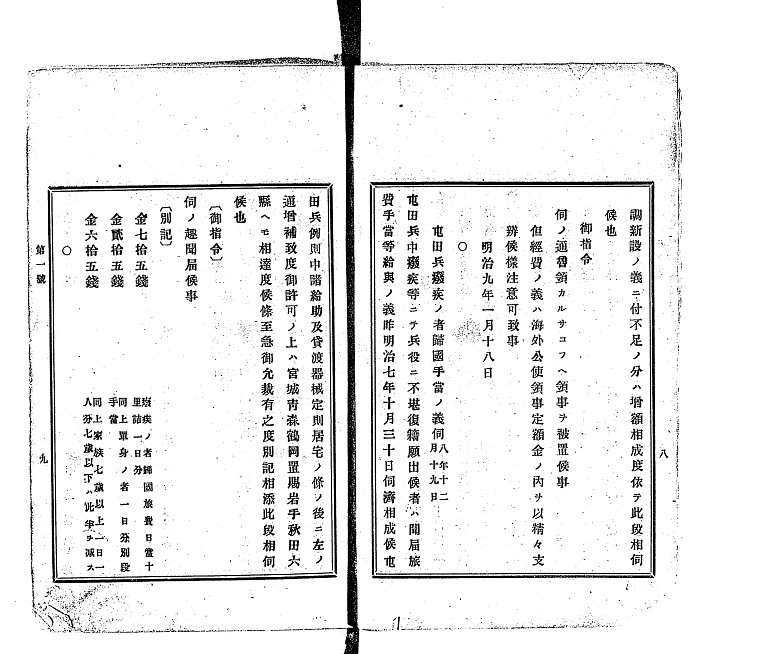 調新設ノ義ニ付不足ノ分ハ增額相成度依テ此段相伺
候也
御指令
伺ノ通魯領カルサコフヘ領事ヲ被置候事
但經費ノ義ハ海外公使領事定額金ノ內サ以精々支
辨候樣注意可致事
明治九年一月十八日
〇
屯田兵癈疾ノ者歸國手當ノ義伺八年十二月十九日
屯田兵中癈疾等ニテ兵役ニ不堪復籍願出候者ハ聞屆旅
費手當等給與ノ義昨明治七年十月三十日伺濟相成候屯
八
田兵例則中諸給助及貸渡器械定則居宅ノ條ノ後ニ左ノ
通增補致度御許可ノ上ハ宮城靑森鶴岡置賜岩手秋田六
縣ヘモ相達度候條至急御允裁有之度別記相添此段相伺
候也
〔御指令〕
伺ノ趣聞屆候事
〔別記〕
金七拾五錢 癈疾ノ者歸國旅費日當十里詰一日分
金貳拾五錢 同上單身ノ者一日分別段手當
金六拾五錢 同上家族七歲以上一日一人分七歲以下ハ此半ヲ減ス
〇
第一號
九